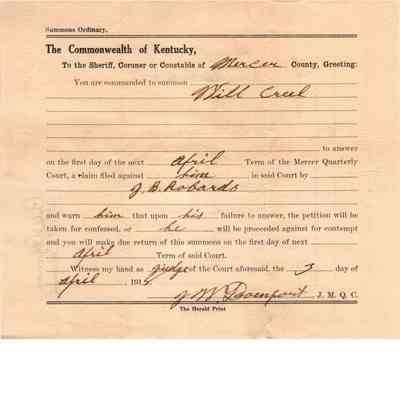 Summons Ordinary.
The Commonwealth of Kentucky,
To the Sheriff, Coroner or Constable of Mercer County, Greeting:
You are commanded to summon
Will Creel
to answer
on the first day of the next April Term of the Mercer Quarterly
Court, a claim filed against him in said Court by
J. B. Robards
and warn him that upon his failure to answer, the petition will be
taken for confessed, or he will be proceeded against for contempt
and you will make due return of this summons on the first day of next
April Term of said Court.
Witness my hand as Judge of the Court aforesaid, the 3 day of
April 191
J. W. Davenport J. M. Q. C.
The Herald Print